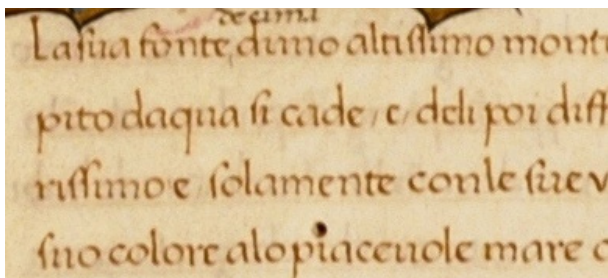 de cima
La sua fonte duno altissimo mont
pito daqua si cade, e, deli poi diff
rissimo e solamente conle sue v
suo colore alo piaceuole mare c